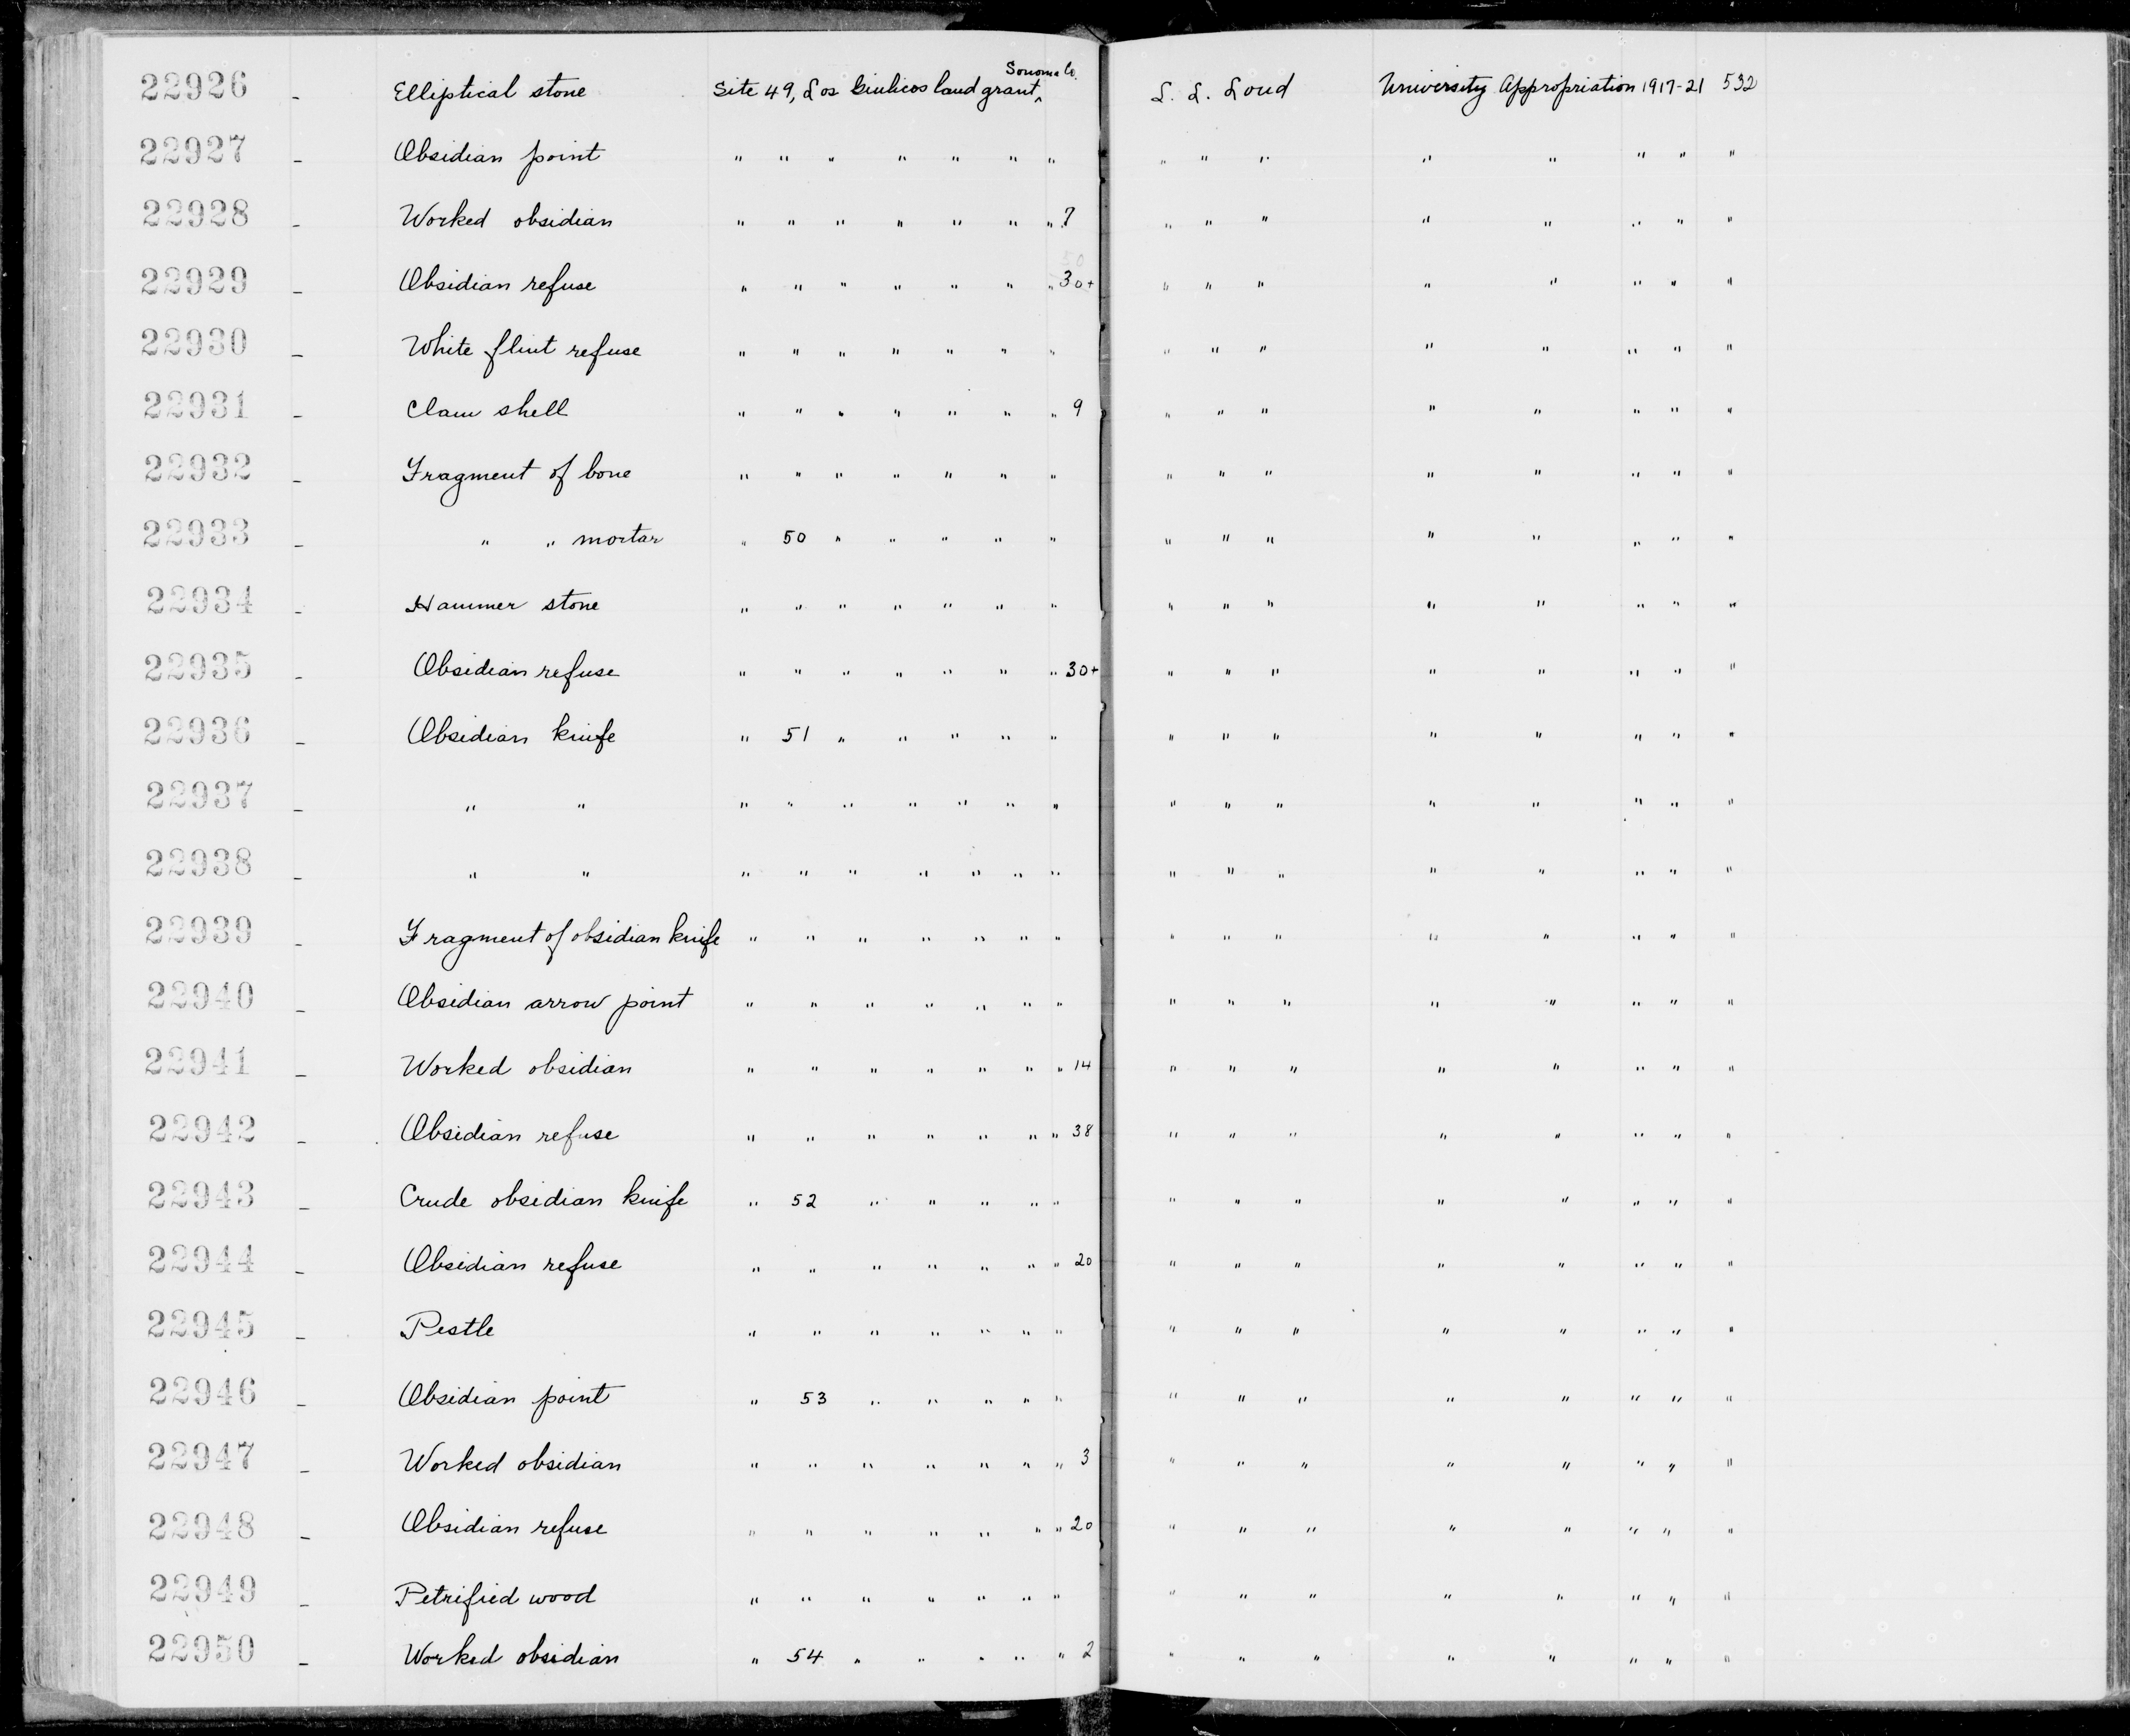 22926 - Elliptical stone Site 49, Los Guilicos land grant, Sonoma Co. L. L. Loud University Appropriation 1917-21 532
22927 - Obsidian point " " " " " " " " " " " " " " "
22928 - Worked obsidian " " " " " " " 7 " " " " " " " "
22929 - Obsidian refuse " " " " " " " 30+ " " " " " " " "
22930 - White flint refuse " " " " " " " " " " " " " " "
22931 - Clam shell " " " " " " " 9 " " " " " " " "
22932 - Fragment of bone " " " " " " " " " " " " " " "
22933 - " " mortar " 50 " " " " " " " " " " " " "
22934 - Hammer stone " " " " " " " " " " " " " " "
22935 - Obsidian refuse " " " " " " " 30+ " " " " " " " "
22936 - Obsidian knife " 51 " " " " " " " " " " " " "
22937 - " " " " " " " " " " " " " " " " "
22938 - " " " " " " " " " " " " " " " " "
22939 - Fragment of obsidian knife " " " " " " " " " " " " " " "
22940 - Obsidian arrow point " " " " " " " " " " " " " " "
22941 - Worked obsidian " " " " " " " 14 " " " " " " " "
22942 - Obsidian refuse " " " " " " " 38 " " " " " " " "
22943 - Crude obsidian knife " 52 " " " " " " " " " " " " "
22944 - Obsidian refuse " " " " " " " 20 " " " " " " " "
22945 - Pestle " " " " " " " " " " " " " " "
22946 - Obsidian point " 53 " " " " " " " " " " " " "
22947 - Worked obsidian " " " " " " " 3 " " " " " " " "
22948 - Obsidian refuse " " " " " " " 20 " " " " " " " "
22949 - Petrified wood " " " " " " " " " " " " " " "
22950 - Worked obsidian " 54 " " " " " 2 " " " " " " " "